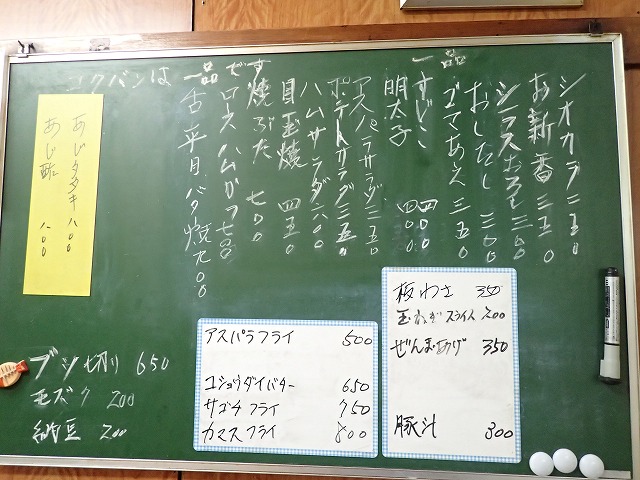 一品
シオカラ 二五〇
お新香 三五〇
シラスおろし 三五〇
おしたし 三五〇
ゴマあえ 三五〇
すじこ 四〇〇
明太子 四〇〇
アスパラサラダ 三五〇
ポテトサラダ 三五〇
ハムサラダ 六〇〇
目玉焼 四五〇
す焼ぶた 七〇〇
ロースハムカツ 七〇〇
舌平目バタ焼 九〇〇
一品
コクバンは
あじタタキ 八〇〇
あじ酢 八〇〇
ブツ切り 650
モズク 200
納豆 200
アスパラフライ 500
コショウダイバター 650
サゴチフライ 750
カマスフライ 800
板わさ 350
玉ねぎスライス 200
ぜんまあげ 350
豚汁 300